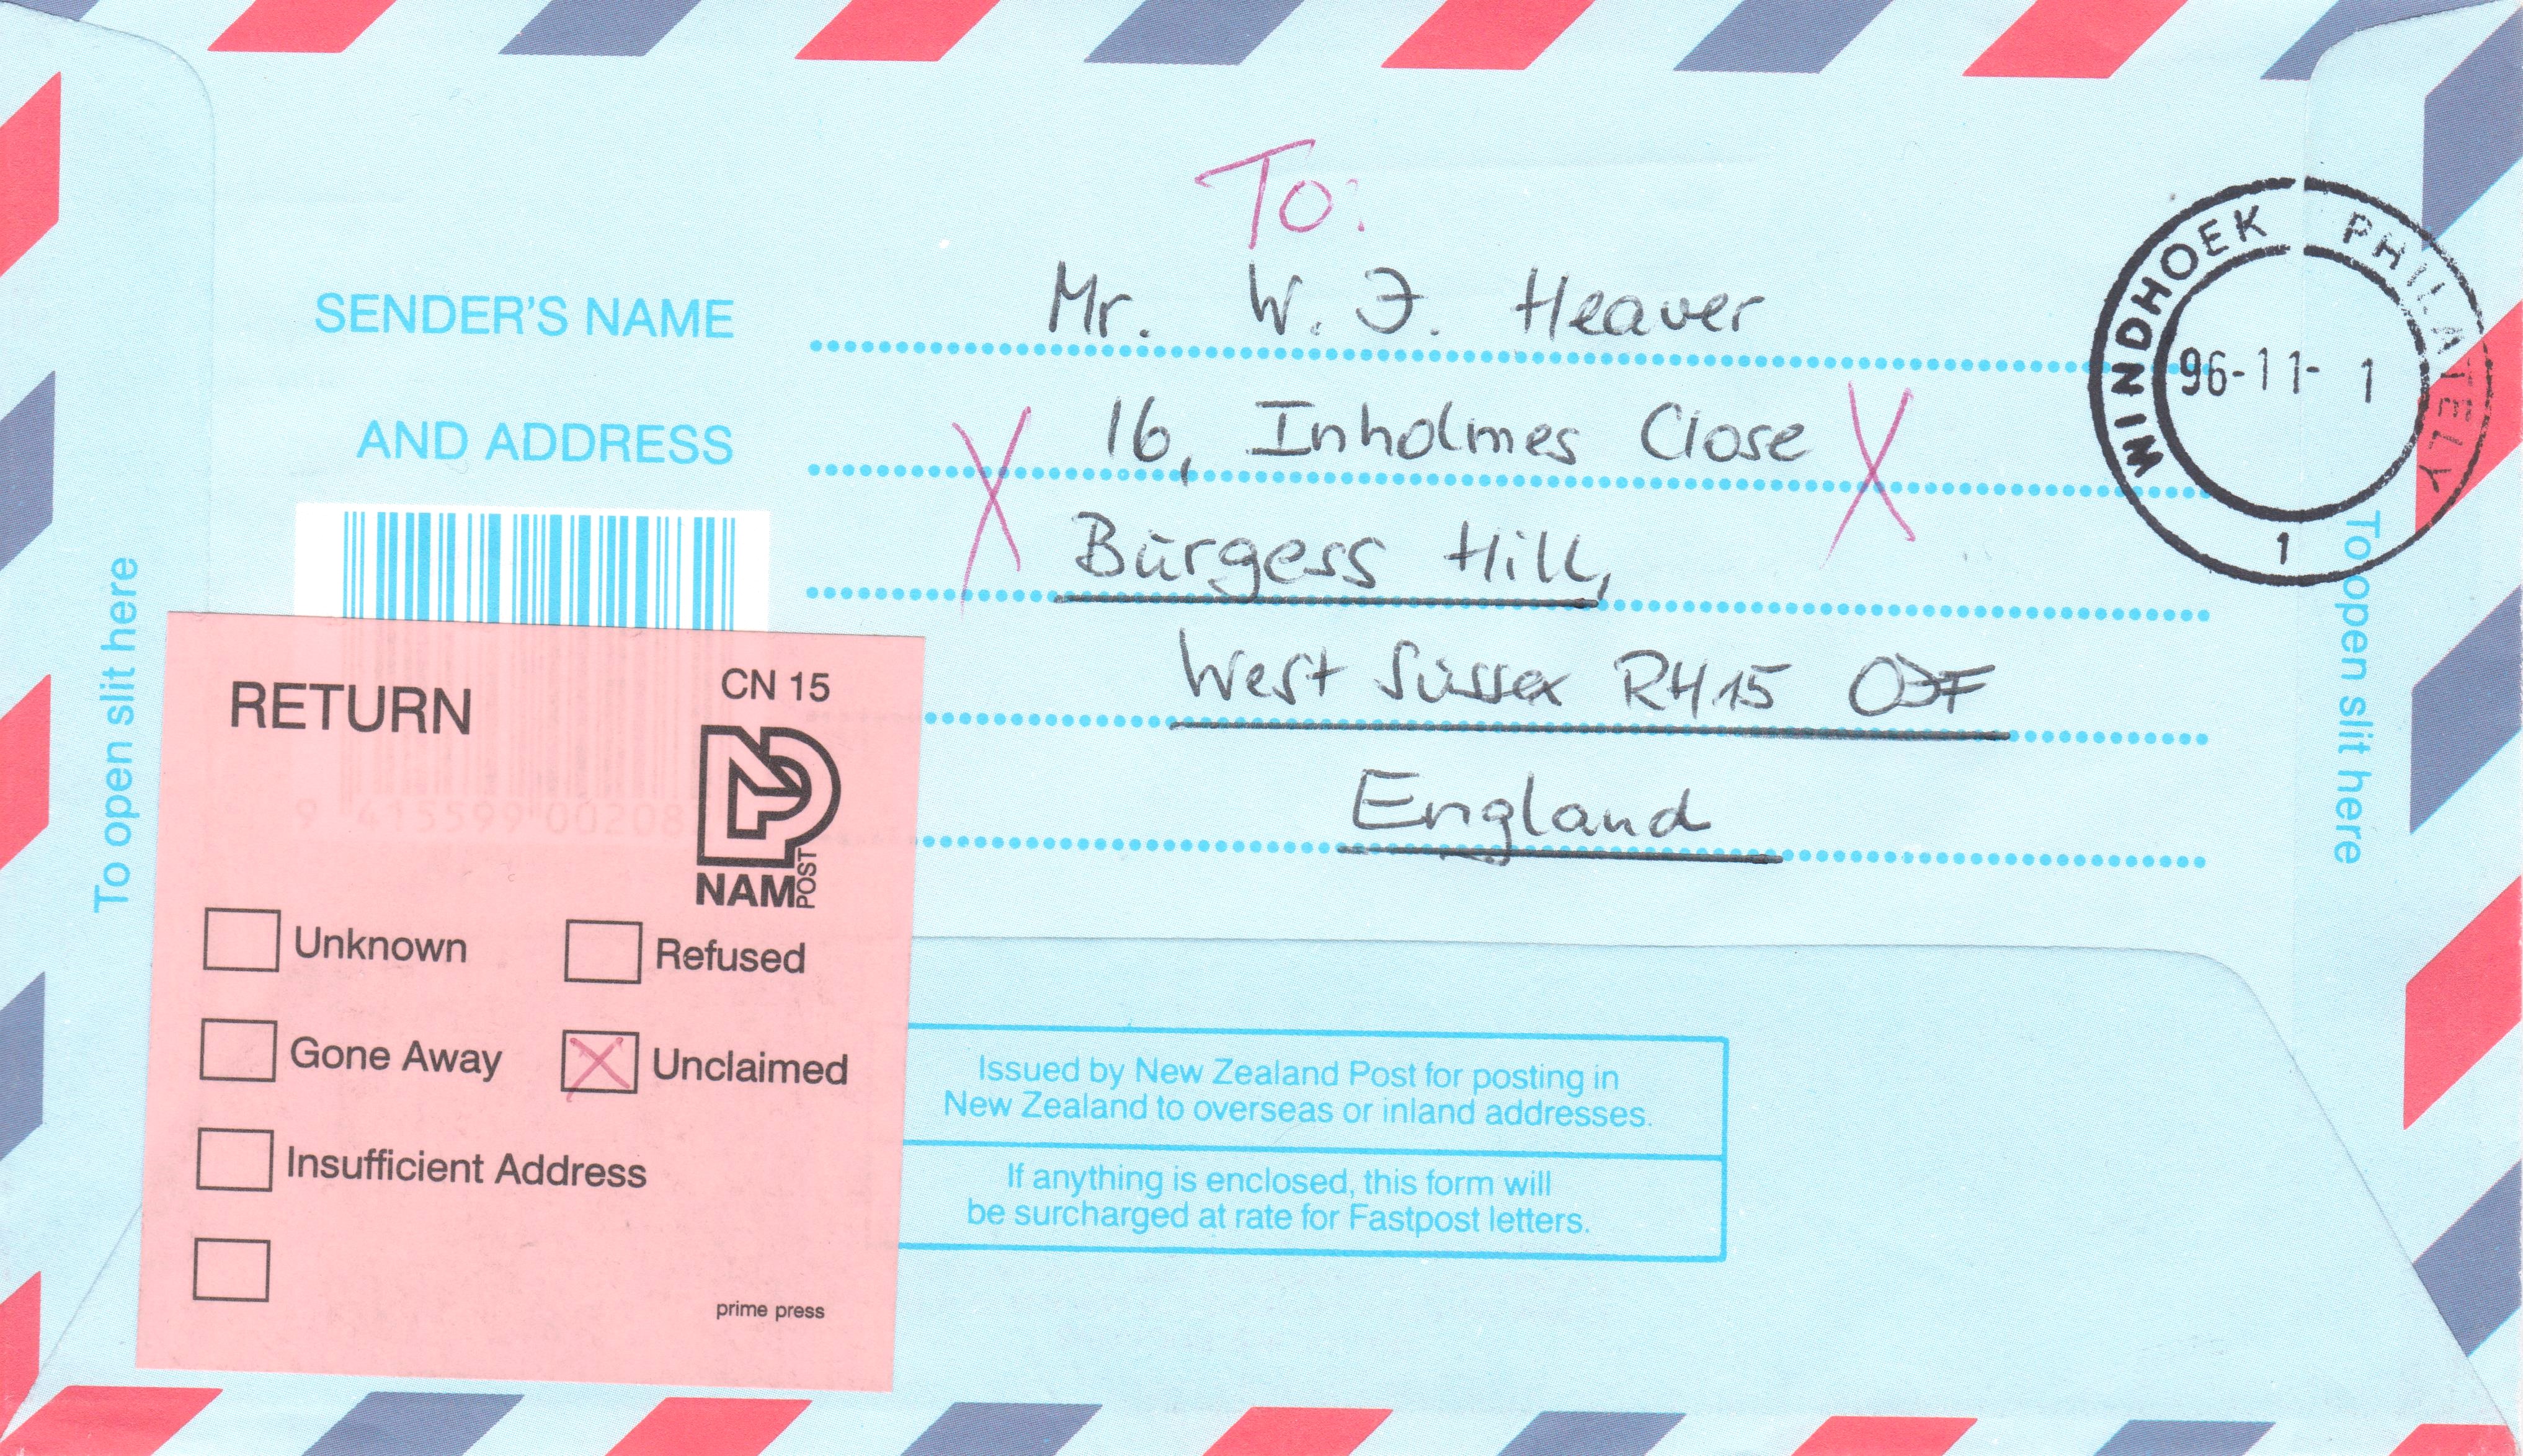 To:
SENDER'S NAME
Mr. W. J. Heaver
AND ADDRESS
16, Inholmes Close
Burgess Hill,
West Sussex RH15 0JF
England
WINDHOEK PHILATELY
96-11- 1
1
To open slit here
To open slit here
RETURN
CN 15
9 415599 00208
NAM POST
Unknown
Refused
Gone Away
Unclaimed
Insufficient Address
prime press
Issued by New Zealand Post for posting in
New Zealand to overseas or inland addresses.
If anything is enclosed, this form will
be surcharged at rate for Fastpost letters.